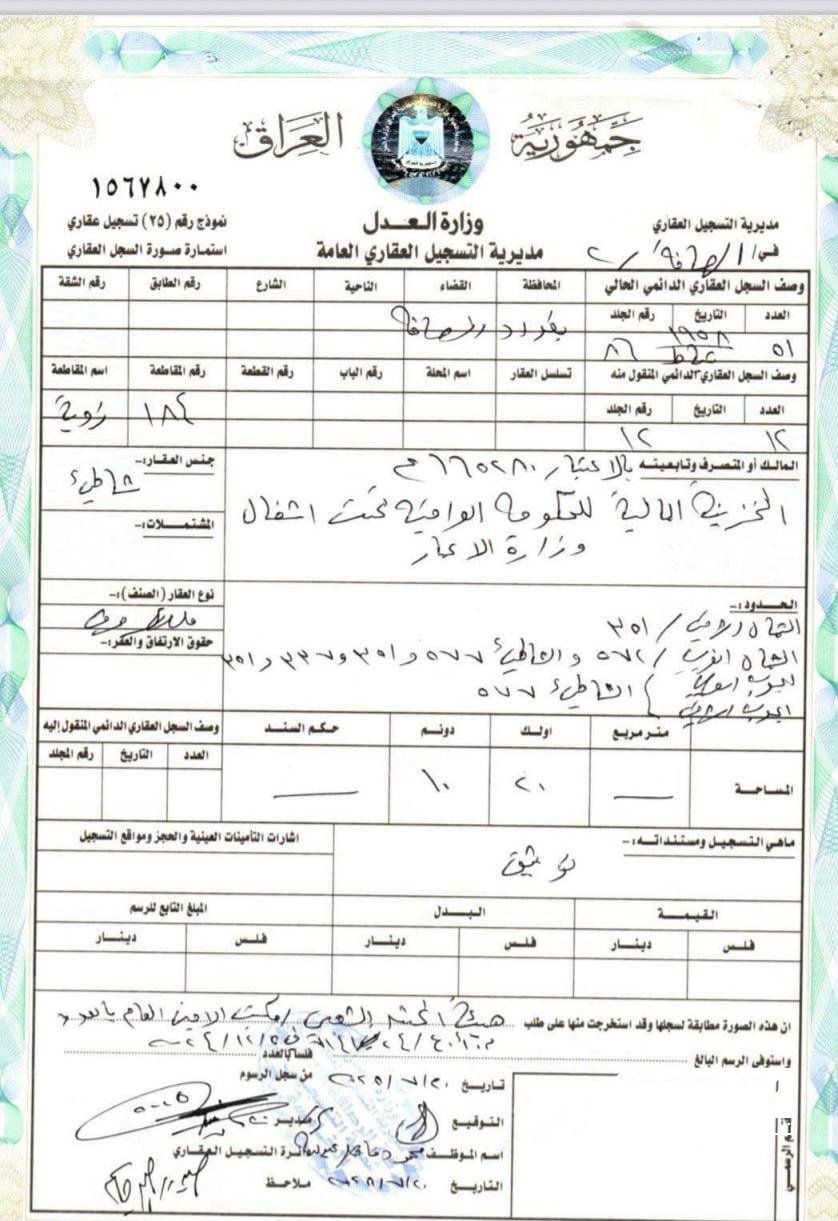 جمهورية العراق
١٥٦٧٨٠٠
وزارة العدل
مديرية التسجيل العقاري العامة
مديرية التسجيل العقاري
في / الرصافة / ٢
نموذج رقم (٢٥) تسجيل عقاري
استمارة صورة السجل العقاري
وصف السجل العقاري الدائمي الحالي
المحافظة القضاء الناحية الشارع رقم الطابق رقم الشقة
العدد التاريخ رقم الجلد
بغداد الرصافة
٥١ ١٩٥٨ ٨٦
وصف السجل العقاري الدائمي المنقول منه
تسلسل العقار اسم المحلة رقم الباب رقم القطعة رقم المقاطعة اسم المقاطعة
العدد التاريخ رقم الجلد
١٨٤ زوية
١٢ ١٢
المالك أو المتصرف وتابعيته :- بالاعتبار
الخزينة المالية للحكومة العراقية تحت اشغال
وزارة الاعمار
جنس العقار :-
شاطئ
المشتملات :-
نوع العقار (الصنف) :-
حقوق الارتفاق والعقر :-
الحدود :-
الشمال الشرقي / ٣٥١
الشمال الغربي / ٥٧٢ والشاطئ ٥٧٧ و ٣٥١ و ٣٣٧ و ٣٥١
الجنوب الغربي
الجنوب الشرقي
الشاطئ ٥٧٧
متر مربع اولك دونم حكم السند
وصف السجل العقاري الدائمي المنقول إليه
العدد التاريخ رقم المجلد
المساحة ٢٠ ١٠
ماهي التسجيل ومستنداته :-
توثيق
اشارات التأمينات العينية والحجز ومواقع التسجيل
القيمة البدل المبلغ التابع للرسم
فلس دينار فلس دينار فلس دينار
ان هذه الصورة مطابقة لسجلها وقد استخرجت منها على طلب هيئة الحشد الشعبي / مكتب الامين العام بالعدد
واستوفى الرسم البالغ فلسا بالعدد
تاريخ ٢٠٢٥/٧/٢٠ من سجل الرسوم
التوقيع مدير
اسم الموظف دائرة التسجيل العقاري
التاريخ ملاحظ